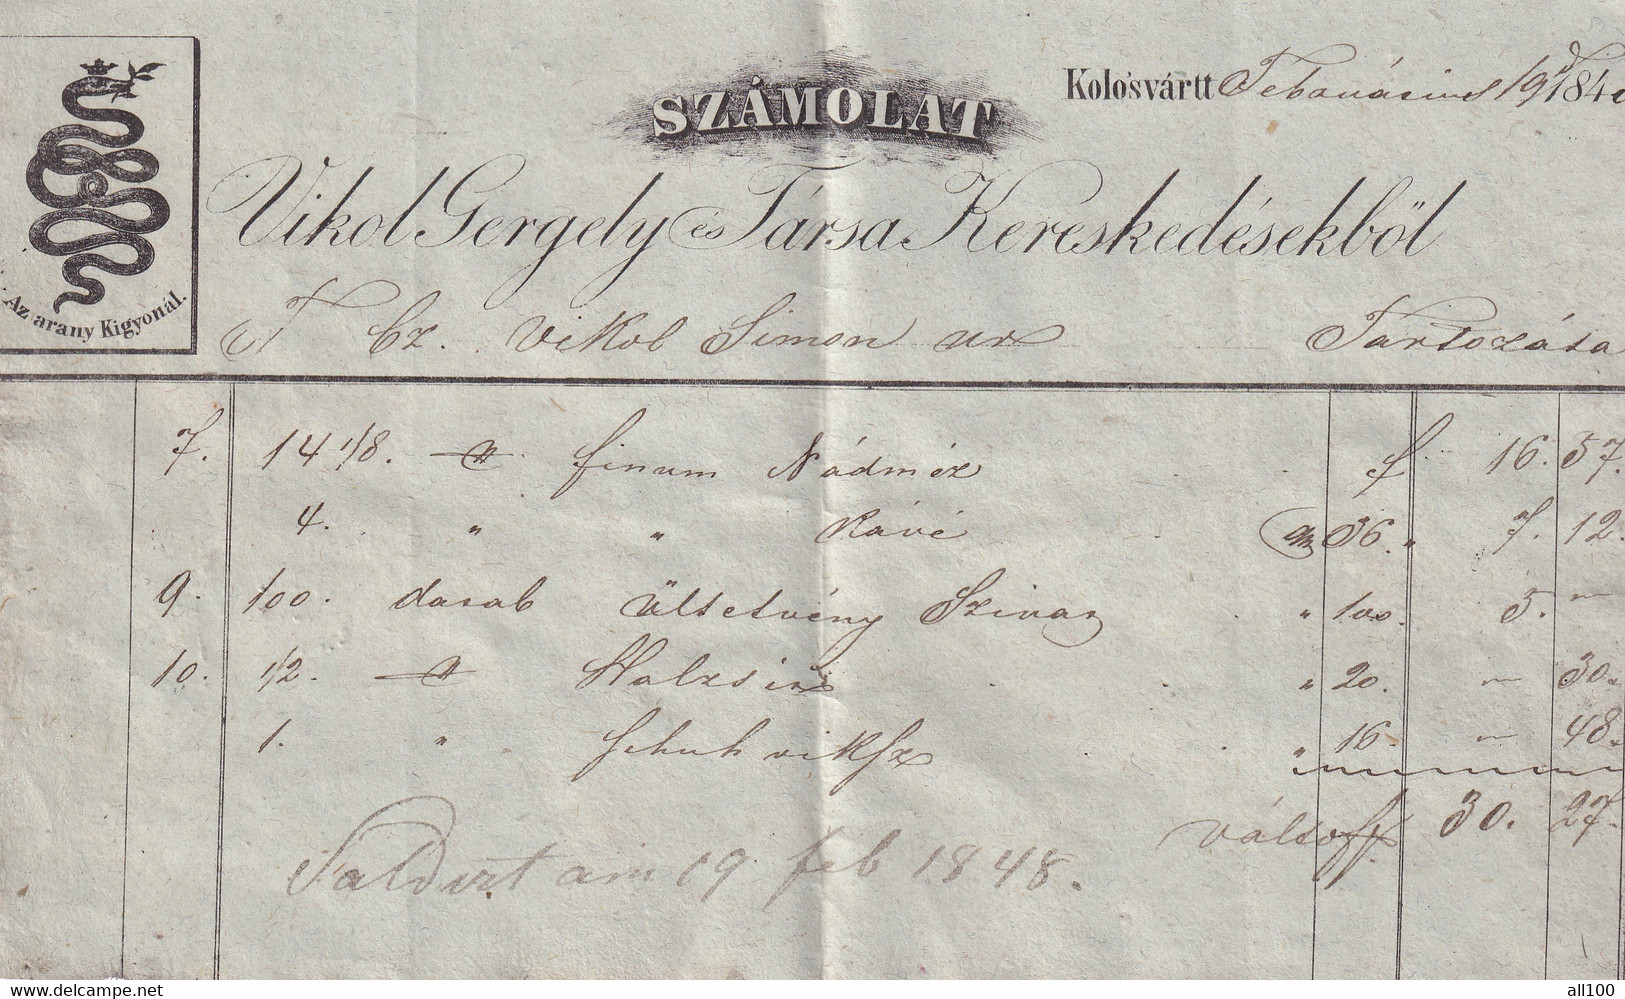 SZÁMOLAT
Kolo'svártt Februárius 19 184
Vikol Gergely és Társa Kereskedésekből
Az arany Kigyonál.
T Cz. Vikol Simon ur Tartozása
7. 14 1/8. finum Nádméz f 16. 57.
4. " " Kávé 36. " 7. 12.
9. 100. darab Ültetvény Szivar " 100. 5. —
10. 1/2. " 20. — 30.
1. " " 16. — 48.
váltóff 30. 27.
Saldirt am 19 feb 1848.
www.delcampe.net
all100